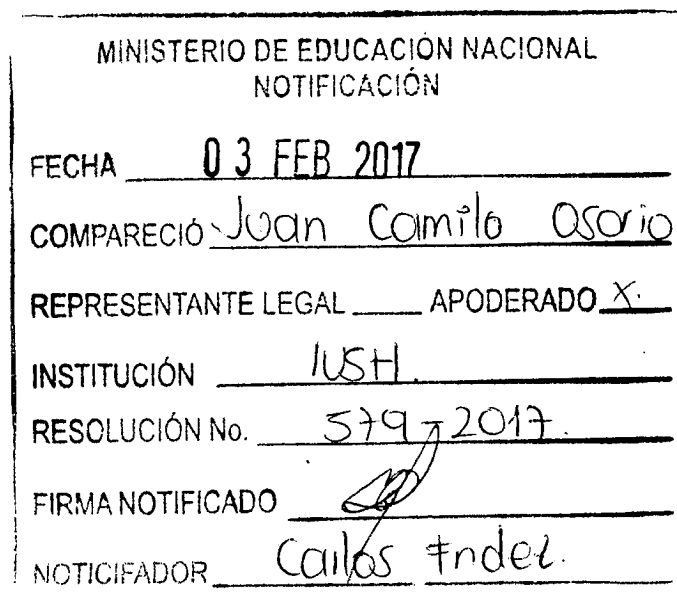 MINISTERIO DE EDUCACIÓN NACIONAL
NOTIFICACIÓN
FECHA 03 FEB 2017
COMPARECIÓ Juan Camilo Osorio
REPRESENTANTE LEGAL ____ APODERADO X.
INSTITUCIÓN IUSH.
RESOLUCIÓN No. 579-2017.
FIRMA NOTIFICADO
NOTICIFADOR Carlos